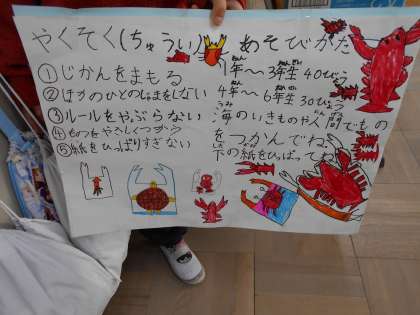 やくそく(ちゅうい)
①じかんをまもる
②ほかのひとのじゃまをしない
③ルールをやぶらない
④ものをやさしくつかう
⑤紙をひっぱりすぎない
あそびかた
1年〜3年生40びょう
4年〜6年生30びょう
海のいきものや人間でもの
をつかんでね
下の紙をひっぱってね